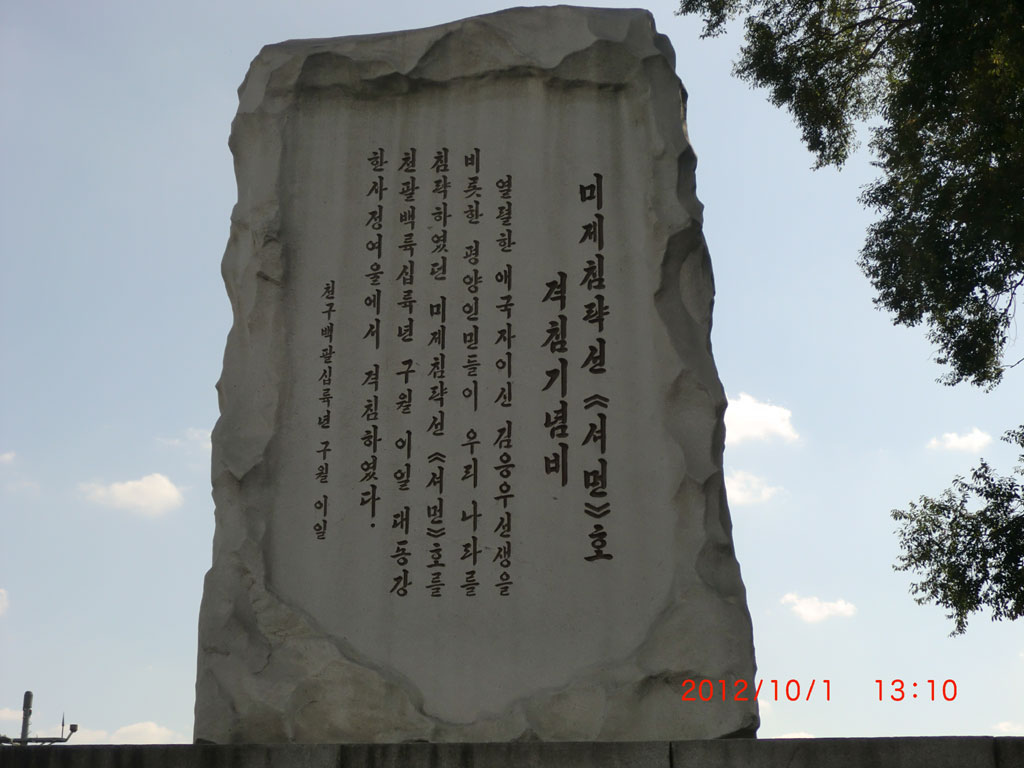 미제침략선《셔먼》호
격침기념비
열렬한 애국자이신 김응우선생을
비롯한 평양인민들이 우리 나라를
침략하였던 미제침략선《셔먼》호를
천팔백륙십륙년 구월 이일 대동강
한사정여울에서 격침하였다.
천구백팔십륙년 구월 이일
2012/10/1 13:10